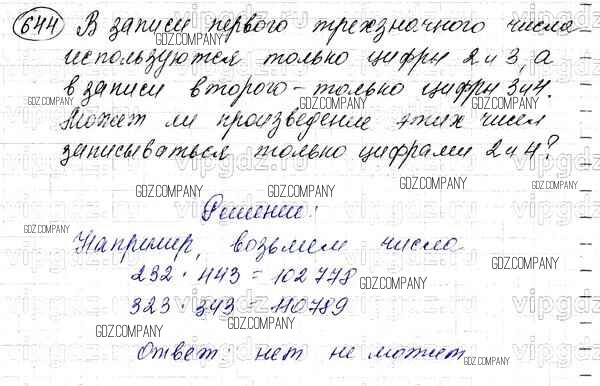 644 В записи первого трехзначного числа
используются только цифры 2 и 3, а
в записи второго - только цифры 3 и 4.
Может ли произведение этих чисел
записываться только цифрами 2 и 4?
Решение:
Например, возьмем числа
232 · 443 = 102778
323 · 343 = 110789
Ответ: нет не может